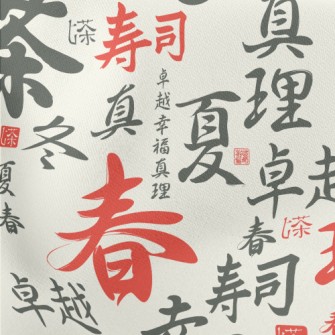 茶
茶
寿司
真理
冬
真
卓越幸福真理
夏
茶
夏春
春
卓越
春
茶
卓越
寿司
茶